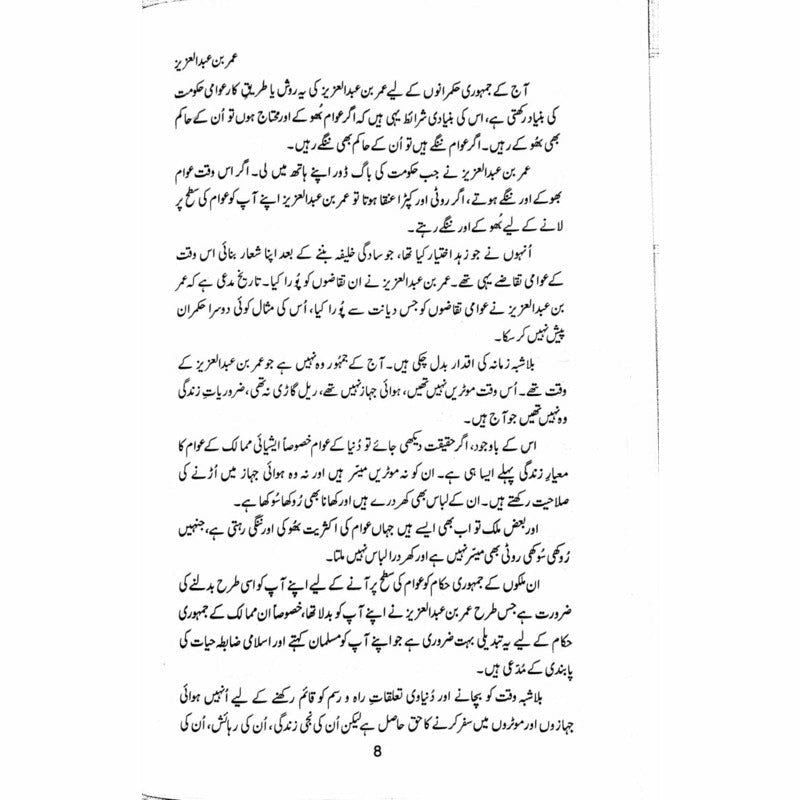 عمر بن عبدالعزیز
آج کے جمہوری حکمرانوں کے لیے عمر بن عبدالعزیز کی یہ روش یا طریقِ کار عوامی حکومت
کی بنیاد رکھتی ہے، اس کی بنیادی شرائط یہی ہیں کہ اگر عوام بھُوکے اور محتاج ہوں تو اُن کے حاکم
بھی بھُوکے رہیں۔ اگر عوام ننگے ہیں تو اُن کے حاکم بھی ننگے رہیں۔
عمر بن عبدالعزیز نے جب حکومت کی باگ ڈور اپنے ہاتھ میں لی۔ اگر اس وقت عوام
بھوکے اور ننگے ہوتے، اگر روٹی اور کپڑا عنقا ہوتا تو عمر بن عبدالعزیز اپنے آپ کو عوام کی سطح پر
لانے کے لیے بھُوکے اور ننگے رہتے۔
اُنہوں نے جو زہد اختیار کیا تھا، جو سادگی خلیفہ بننے کے بعد اپنا شعار بنائی اس وقت
کے عوامی تقاضے یہی تھے۔ عمر بن عبدالعزیز نے ان تقاضوں کو پُورا کیا۔ تاریخ مدعی ہے کہ عمر
بن عبدالعزیز نے عوامی تقاضوں کو جس دیانت سے پُورا کیا، اُس کی مثال کوئی دوسرا حکمران
پیش نہیں کر سکا۔
بلاشبہ زمانہ کی اقدار بدل چکی ہیں۔ آج کے جمہُور وہ نہیں ہے جو عمر بن عبدالعزیز کے
وقت تھے۔ اُس وقت موٹریں نہیں تھیں، ہوائی جہاز نہیں تھے، ریل گاڑی نہ تھی، ضروریاتِ زندگی
وہ نہیں تھیں جو آج ہیں۔
اس کے باوجود، اگر حقیقت دیکھی جائے تو دُنیا کے عوام خصوصاً ایشیائی ممالک کے عوام کا
معیارِ زندگی پہلے ایسا ہی ہے۔ ان کو نہ موٹریں میسّر ہیں اور نہ وہ ہوائی جہاز میں اُڑنے کی
صلاحیت رکھتے ہیں۔ ان کے لباس بھی کھردرے ہیں اور کھانا بھی رُوکھا سُوکھا ہے۔
اور بعض ملک تو اب بھی ایسے ہیں جہاں عوام کی اکثریت بھُوکی اور ننگی رہتی ہے، جنہیں
رُوکھی سُوکھی روٹی بھی میسّر نہیں ہے اور کھردرا لباس نہیں ملتا۔
ان ملکوں کے جمہوری حکام کو عوام کی سطح پر آنے کے لیے اپنے آپ کو اسی طرح بدلنے کی
ضرورت ہے جس طرح عمر بن عبدالعزیز نے اپنے آپ کو بدلا تھا، خصوصاً ان ممالک کے جمہوری
حکام کے لیے یہ تبدیلی بہت ضروری ہے جو اپنے آپ کو مسلمان کہتے اور اسلامی ضابطہ حیات کی
پابندی کے مُدّعی ہیں۔
بلاشبہ وقت کو بچانے اور دُنیاوی تعلقاتِ راہ و رسم کو قائم رکھنے کے لیے اُنہیں ہوائی
جہازوں اور موٹروں میں سفر کرنے کا حق حاصل ہے لیکن اُن کی نجی زندگی، اُن کی رہائش، اُن کی
8